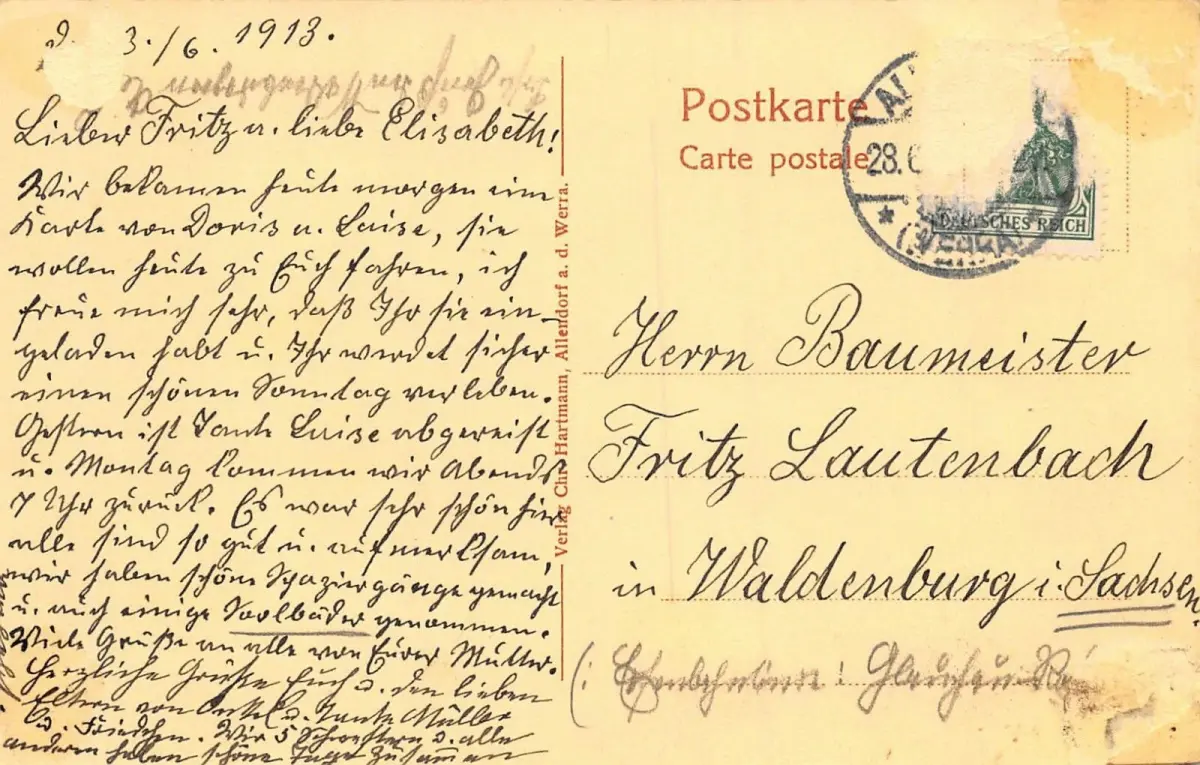 d. 3./6. 1913.
Lieber Fritz u. liebe Elisabeth!
Wir bekamen heute morgen eine
Karte von Doris u. Luise, sie
wollen heute zu Euch fahren, ich
freue mich sehr, daß Ihr sie ein-
geladen habt u. Ihr werdet sicher
einen schönen Sonntag verleben.
Gestern ist Tante Luise abgereist
u. Montag kommen wir Abends
7 Uhr zurück. Es war sehr schön hier
alle sind so gut u. aufmerksam,
wir haben schöne Spaziergänge gemacht
u. auch einige Soolbäder genommen.
Viele Grüße an alle von Eurer Mutter.
Herzliche Grüße Euch u. den lieben
Eltern von Onkel u. Tante Müller
u. Friedchen. Wir 5 Schwestern u. alle
anderen haben schöne Tage zusammen
Verlag Chr. Hartmann, Allendorf a. d. Werra.
Postkarte
Carte postale
28.6
(WERRA)
DEUTSCHES REICH
Herrn Baumeister
Fritz Lautenbach
in Waldenburg i. Sachsen.
Glauchau